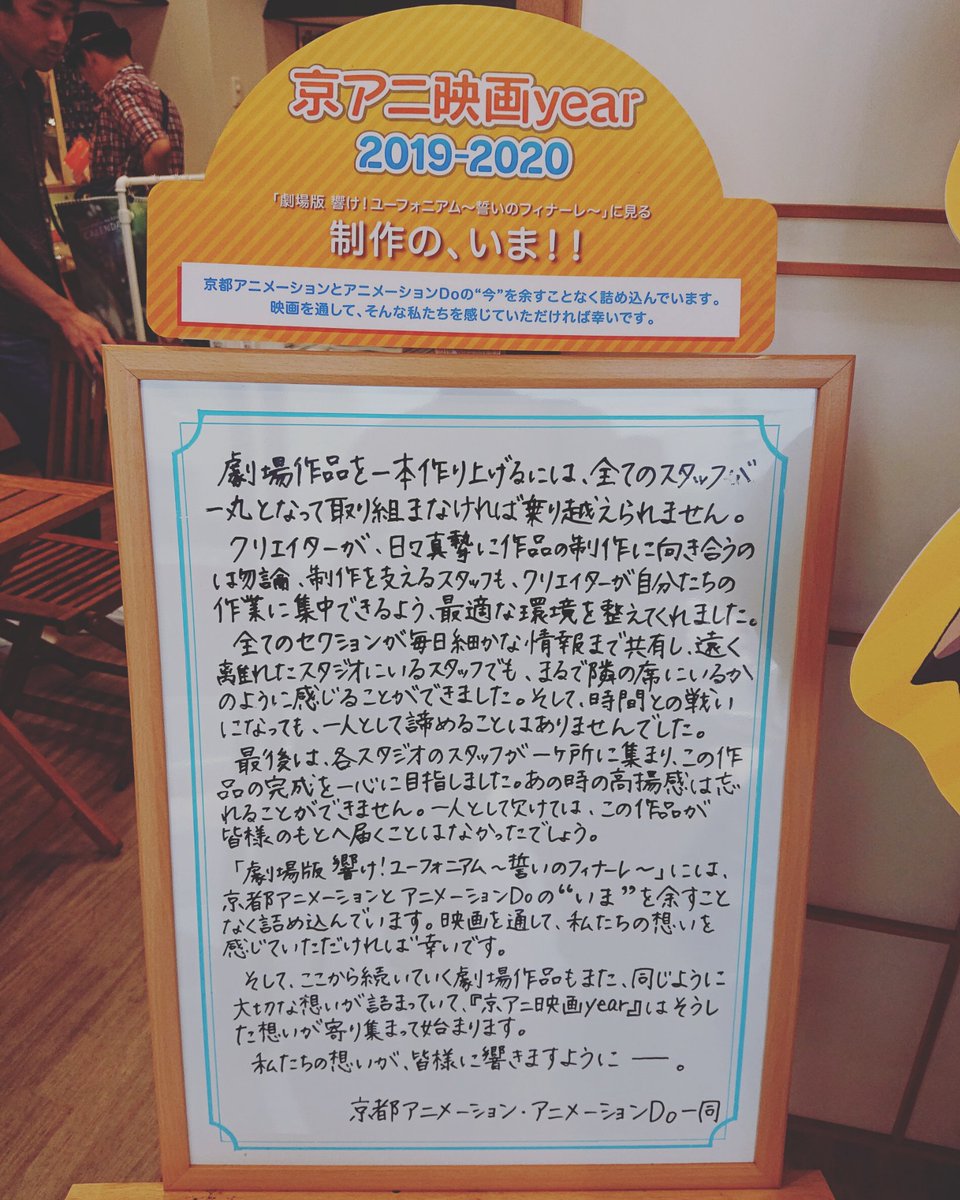 京アニ映画year
2019-2020
「劇場版 響け！ユーフォニアム〜誓いのフィナーレ〜」に見る
制作の、いま！！
京都アニメーションとアニメーションDoの“今”を余すことなく詰め込んでいます。
映画を通して、そんな私たちを感じていただければ幸いです。
CALENDAR
劇場作品を一本作り上げるには、全てのスタッフが
一丸となって取り組まなければ乗り越えられません。
クリエイターが、日々真摯に作品の制作に向き合うの
は勿論、制作を支えるスタッフも、クリエイターが自分たちの
作業に集中できるよう、最適な環境を整えてくれました。
全てのセクションが毎日細かな情報まで共有し、遠く
離れたスタジオにいるスタッフでも、まるで隣の席にいるか
のように感じることができました。そして、時間との戦い
になっても、一人として諦めることはありませんでした。
最後は、各スタジオのスタッフが一ヶ所に集まり、この作
品の完成を一心に目指しました。あの時の高揚感は忘
れることができません。一人として欠けては、この作品が
皆様のもとへ届くことはなかったでしょう。
「劇場版 響け！ユーフォニアム〜誓いのフィナーレ〜」には、
京都アニメーションとアニメーションDoの“いま”を余すこと
なく詰め込んでいます。映画を通して、私たちの想いを
感じていただければ幸いです。
そして、ここから続いていく劇場作品もまた、同じように
大切な想いが詰まっていて、『京アニ映画year』はそうし
た想いが寄り集まって始まります。
私たちの想いが、皆様に響きますように――。
京都アニメーション・アニメーションDo一同